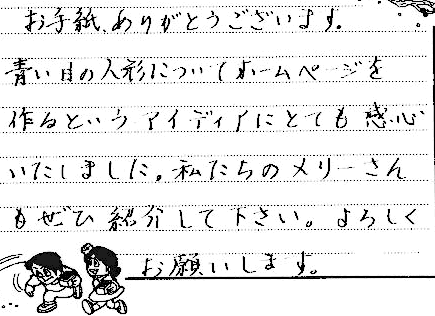 お手紙、ありがとうございます。
青い目の人形についてホームページを
作るというアイディアにとても感心
いたしました。私たちのメリーさん
もぜひ紹介して下さい。よろしく
お願いします。